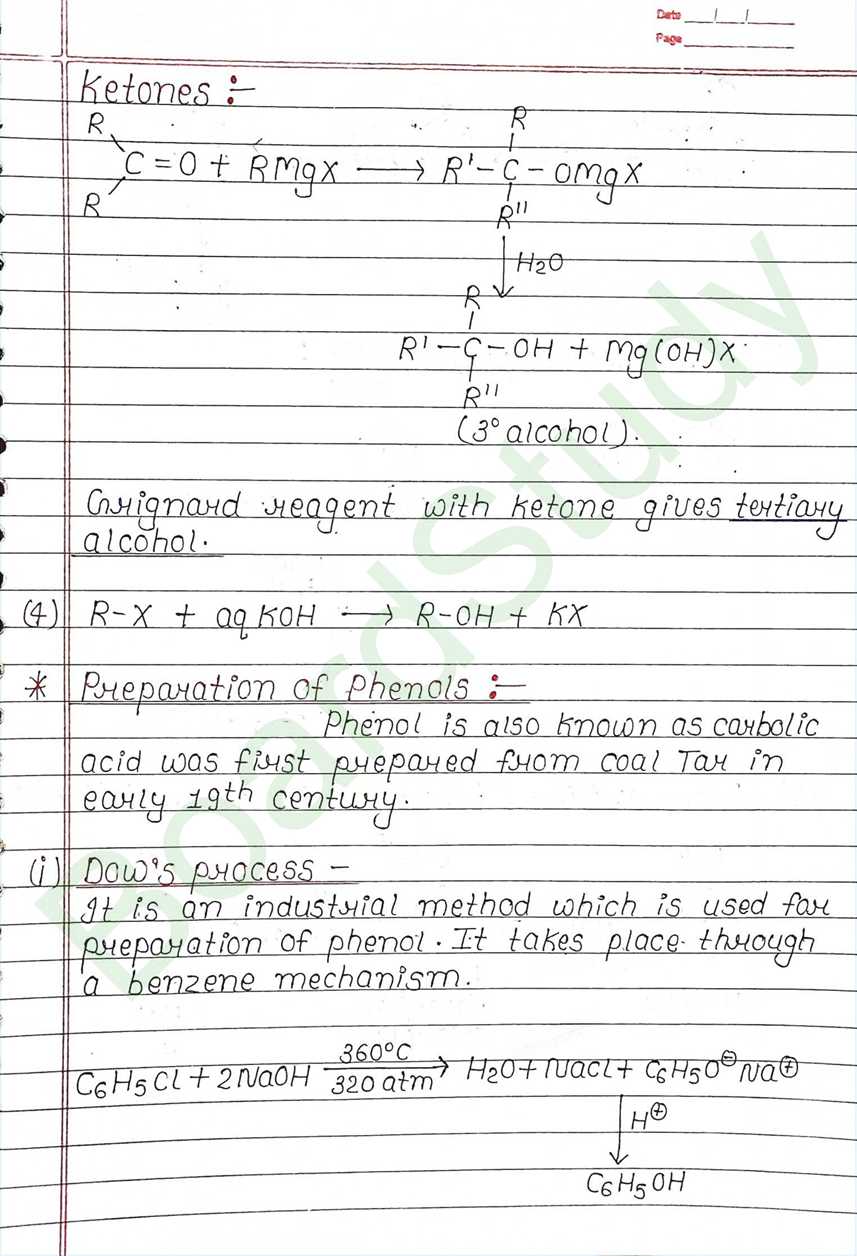 Date __/__/__
Page ______
Ketones :-
R
R
C=O + RMgX ⟶ R'-C-OMgX
R
R''
↓ H2O
R
R'-C-OH + Mg(OH)X
R''
(3° alcohol).
Grignard reagent with ketone gives tertiary
alcohol.
(4) R-X + aq KOH ⟶ R-OH + KX
* Preparation of Phenols :-
Phenol is also known as carbolic
acid was first prepared from coal Tar in
early 19th century.
(i) Dow's process -
It is an industrial method which is used for
preparation of phenol. It takes place through
a benzene mechanism.
360°C
C6H5Cl + 2NaOH ⟶ H2O + NaCl + C6H5O⊖Na⊕
320 atm
↓ H⊕
C6H5OH
BoardStudy